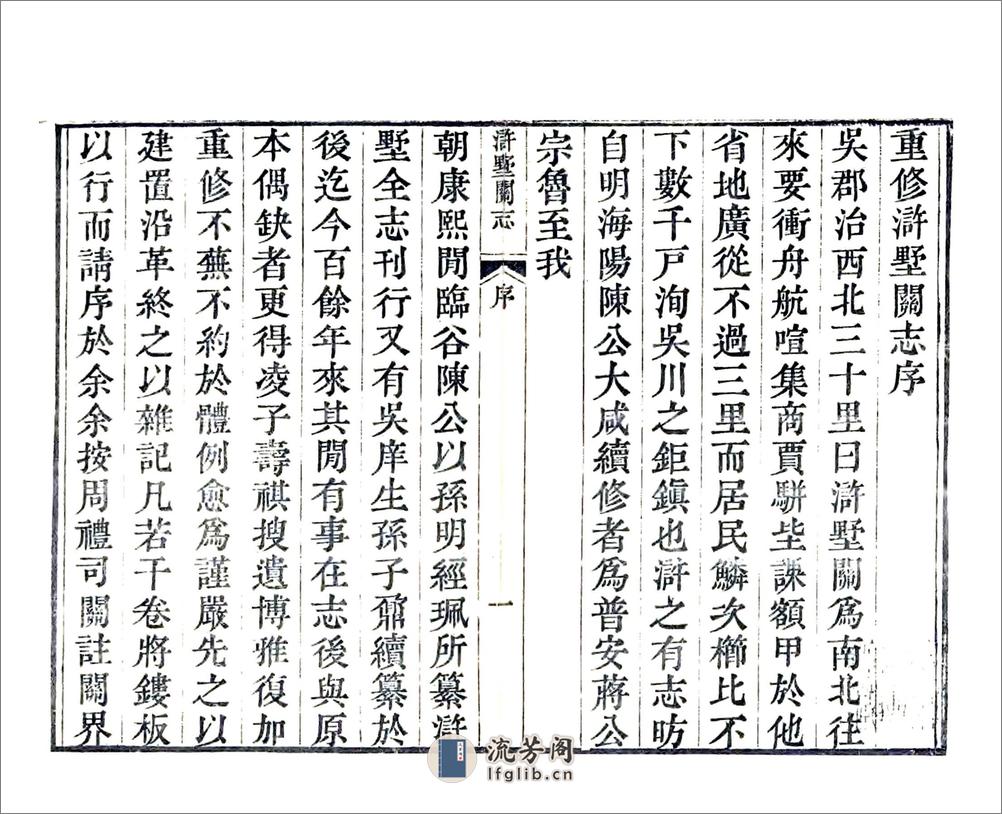 重修滸墅關志序
吳郡治西北三十里曰滸墅關爲南北往
來要衝舟航喧集商賈駢坒課額甲於他
省地廣從不過三里而居民鱗次櫛比不
下數千戸洵吳川之鉅鎭也滸之有志昉
自明海陽陳公大咸續修者爲普安蔣公
宗魯至我
滸墅關志
序
一
朝康熙閒臨谷陳公以孫明經珮所纂滸
墅全志刊行又有吳庠生孫子鼐續纂於
後迄今百餘年來其閒有事在志後與原
本偶缺者更得凌子壽祺搜遺博雅復加
重修不蕪不約於體例愈爲謹嚴先之以
建置沿革終之以雜記凡若干卷將鏤板
以行而請序於余余按周禮司關註關界
流芳阁
lfglib.cn